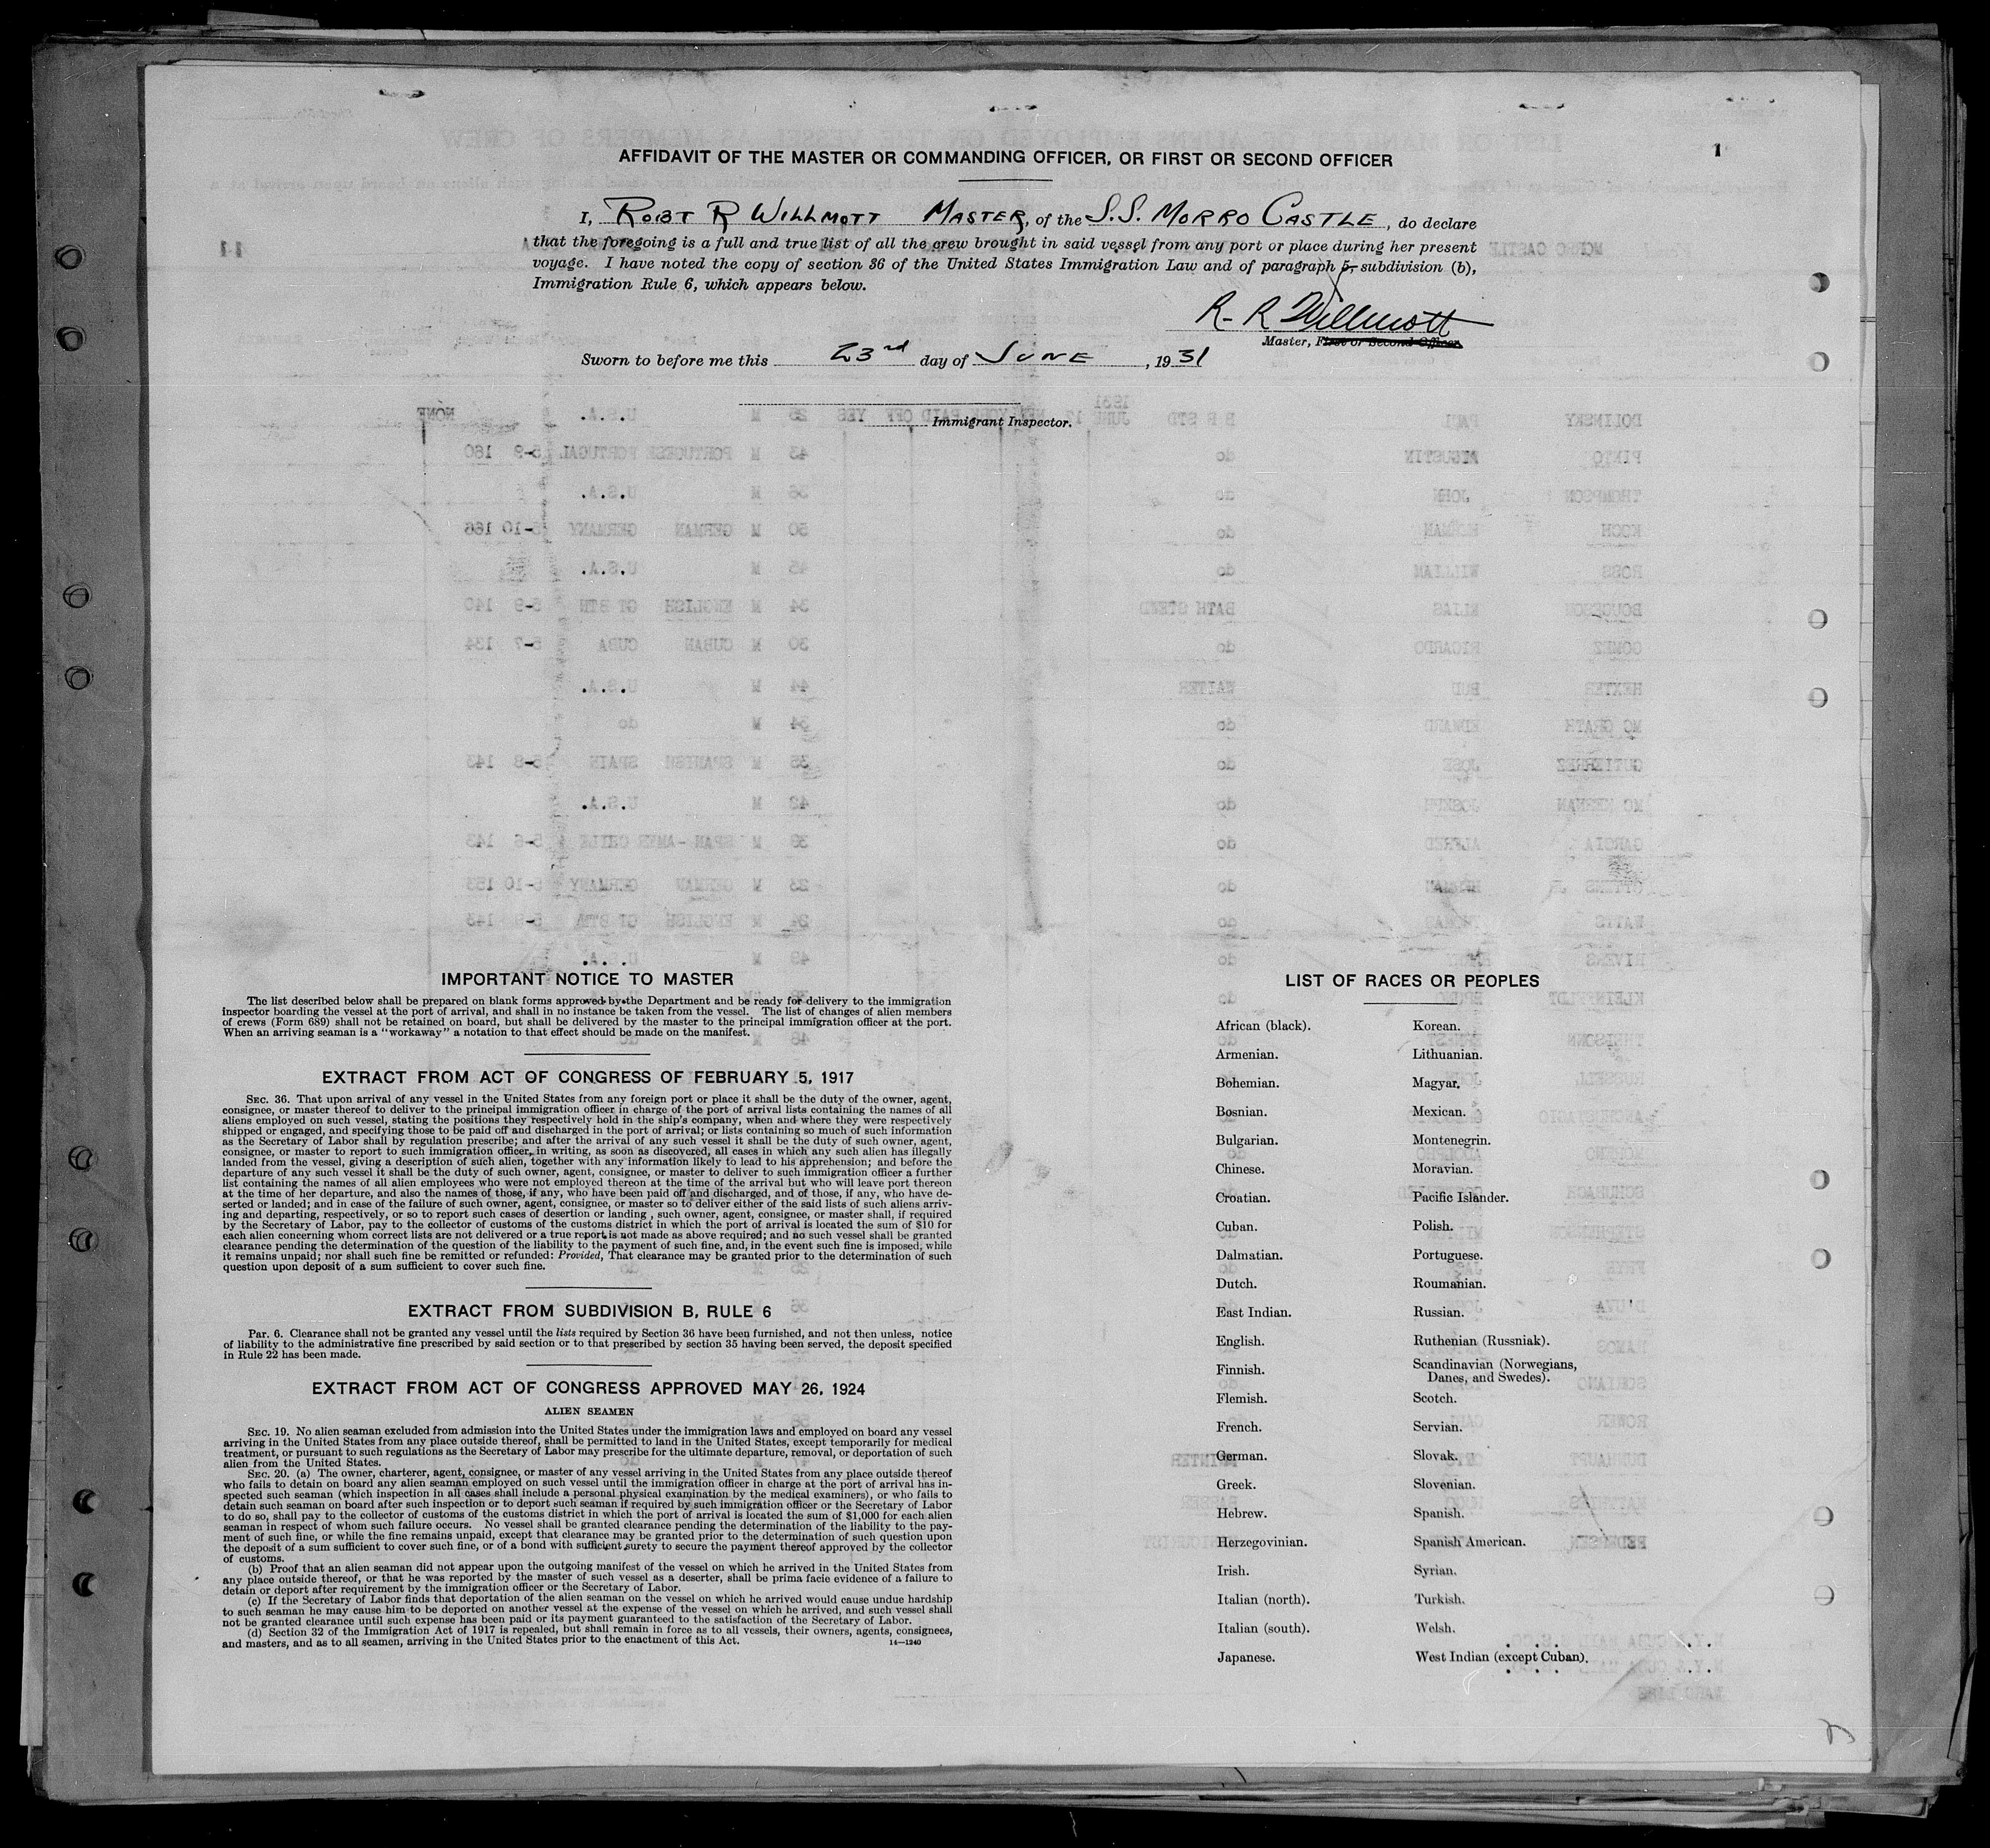 AFFIDAVIT OF THE MASTER OR COMMANDING OFFICER, OR FIRST OR SECOND OFFICER
1
I, ROBT R WILLMOTT MASTER, of the S.S. MORRO CASTLE, do declare
that the foregoing is a full and true list of all the crew brought in said vessel from any port or place during her present
voyage. I have noted the copy of section 36 of the United States Immigration Law and of paragraph 5, subdivision (b),
Immigration Rule 6, which appears below.
R-R Willmott
Master, First or Second Officer.
Sworn to before me this 23rd day of JUNE, 1931
Immigrant Inspector.
IMPORTANT NOTICE TO MASTER
The list described below shall be prepared on blank forms approved by the Department and be ready for delivery to the immigration
inspector boarding the vessel at the port of arrival, and shall in no instance be taken from the vessel. The list of changes of alien members
of crews (Form 689) shall not be retained on board, but shall be delivered by the master to the principal immigration officer at the port.
When an arriving seaman is a "workaway" a notation to that effect should be made on the manifest.
EXTRACT FROM ACT OF CONGRESS OF FEBRUARY 5, 1917
SEC. 36. That upon arrival of any vessel in the United States from any foreign port or place it shall be the duty of the owner, agent,
consignee, or master thereof to deliver to the principal immigration officer in charge of the port of arrival lists containing the names of all
aliens employed on such vessel, stating the positions they respectively hold in the ship's company, when and where they were respectively
shipped or engaged, and specifying those to be paid off and discharged in the port of arrival; or lists containing so much of such information
as the Secretary of Labor shall by regulation prescribe; and after the arrival of any such vessel it shall be the duty of such owner, agent,
consignee, or master to report to such immigration officer, in writing, as soon as discovered, all cases in which any such alien has illegally
landed from the vessel, giving a description of such alien, together with any information likely to lead to his apprehension; and before the
departure of any such vessel it shall be the duty of such owner, agent, consignee, or master to deliver to such immigration officer a further
list containing the names of all alien employees who were not employed thereon at the time of the arrival but who will leave port thereon
at the time of her departure, and also the names of those, if any, who have been paid off and discharged, and of those, if any, who have de-
serted or landed; and in case of the failure of such owner, agent, consignee, or master so to deliver either of the said lists of such aliens arriv-
ing and departing, respectively, or so to report such cases of desertion or landing , such owner, agent, consignee, or master shall, if required
by the Secretary of Labor, pay to the collector of customs of the customs district in which the port of arrival is located the sum of $10 for
each alien concerning whom correct lists are not delivered or a true report is not made as above required; and no such vessel shall be granted
clearance pending the determination of the question of the liability to the payment of such fine, and, in the event such fine is imposed, while
it remains unpaid; nor shall such fine be remitted or refunded: Provided, That clearance may be granted prior to the determination of such
question upon deposit of a sum sufficient to cover such fine.
EXTRACT FROM SUBDIVISION B, RULE 6
PAR. 6. Clearance shall not be granted any vessel until the lists required by Section 36 have been furnished, and not then unless, notice
of liability to the administrative fine prescribed by said section or to that prescribed by section 35 having been served, the deposit specified
in Rule 22 has been made.
EXTRACT FROM ACT OF CONGRESS APPROVED MAY 26, 1924
ALIEN SEAMEN
SEC. 19. No alien seaman excluded from admission into the United States under the immigration laws and employed on board any vessel
arriving in the United States from any place outside thereof, shall be permitted to land in the United States, except temporarily for medical
treatment, or pursuant to such regulations as the Secretary of Labor may prescribe for the ultimate departure, removal, or deportation of such
alien from the United States.
SEC. 20. (a) The owner, charterer, agent, consignee, or master of any vessel arriving in the United States from any place outside thereof
who fails to detain on board any alien seaman employed on such vessel until the immigration officer in charge at the port of arrival has in-
spected such seaman (which inspection in all cases shall include a personal physical examination by the medical examiners), or who fails to
detain such seaman on board after such inspection or to deport such seaman if required by such immigration officer or the Secretary of Labor
to do so, shall pay to the collector of customs of the customs district in which the port of arrival is located the sum of $1,000 for each alien
seaman in respect of whom such failure occurs. No vessel shall be granted clearance pending the determination of the liability to the pay-
ment of such fine, or while the fine remains unpaid, except that clearance may be granted prior to the determination of such question upon
the deposit of a sum sufficient to cover such fine, or of a bond with sufficient surety to secure the payment thereof approved by the collector
of customs.
(b) Proof that an alien seaman did not appear upon the outgoing manifest of the vessel on which he arrived in the United States from
any place outside thereof, or that he was reported by the master of such vessel as a deserter, shall be prima facie evidence of a failure to
detain or deport after requirement by the immigration officer or the Secretary of Labor.
(c) If the Secretary of Labor finds that deportation of the alien seaman on the vessel on which he arrived would cause undue hardship
to such seaman he may cause him to be deported on another vessel at the expense of the vessel on which he arrived, and such vessel shall
not be granted clearance until such expense has been paid or its payment guaranteed to the satisfaction of the Secretary of Labor.
(d) Section 32 of the Immigration Act of 1917 is repealed, but shall remain in force as to all vessels, their owners, agents, consignees,
and masters, and as to all seamen, arriving in the United States prior to the enactment of this Act.
14—1240
LIST OF RACES OR PEOPLES
African (black). Korean.
Armenian. Lithuanian.
Bohemian. Magyar.
Bosnian. Mexican.
Bulgarian. Montenegrin.
Chinese. Moravian.
Croatian. Pacific Islander.
Cuban. Polish.
Dalmatian. Portuguese.
Dutch. Roumanian.
East Indian. Russian.
English. Ruthenian (Russniak).
Finnish. Scandinavian (Norwegians,
Danes, and Swedes).
Flemish. Scotch.
French. Servian.
German. Slovak.
Greek. Slovenian.
Hebrew. Spanish.
Herzegovinian. Spanish American.
Irish. Syrian.
Italian (north). Turkish.
Italian (south). Welsh.
Japanese. West Indian (except Cuban).